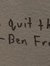 quit th
-Ben Fr